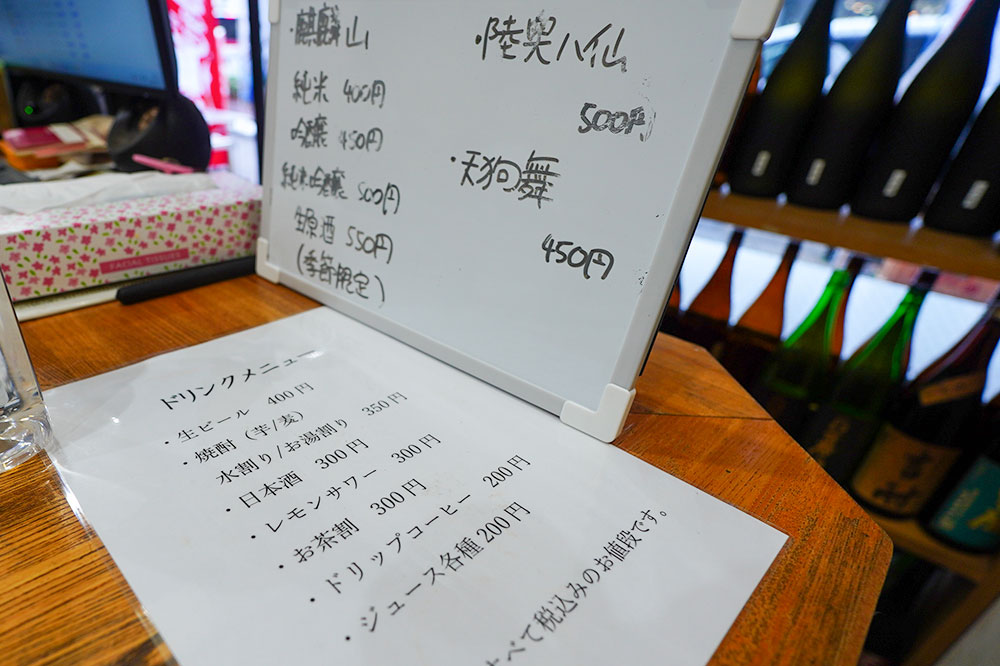 ・麒麟山
純米 400円
吟醸 450円
純米吟醸 500円
生原酒 550円
(季節限定)
・陸奥八仙
500円
・天狗舞
450円
FACIAL TISSUES
ドリンクメニュー
・生ビール 400円
・焼酎（芋/麦）
水割り/お湯割り 350円
・日本酒 300円
・レモンサワー 300円
・お茶割 300円
・ドリップコーヒー 200円
・ジュース各種200円
すべて税込みのお値段です。